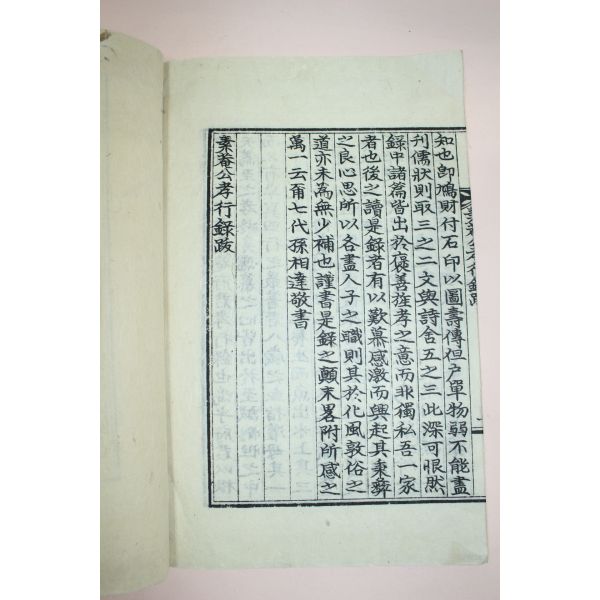 知也卽鳩財付石印以圖壽傳但户單物弱不能盡
刋儒狀則取三之二文與詩舍五之三此深可恨然
錄中諸篇皆出於褒善旌孝之意而非獨私吾一家
者也後之讀是錄者有以歎慕感激而興起其秉彛
之良心思所以各盡人子之職則其於化風敦俗之
道亦未為無少補也謹書是錄之顛末畧附所感之
萬一云爾七代孫相達敬書
菴公孝行錄跋